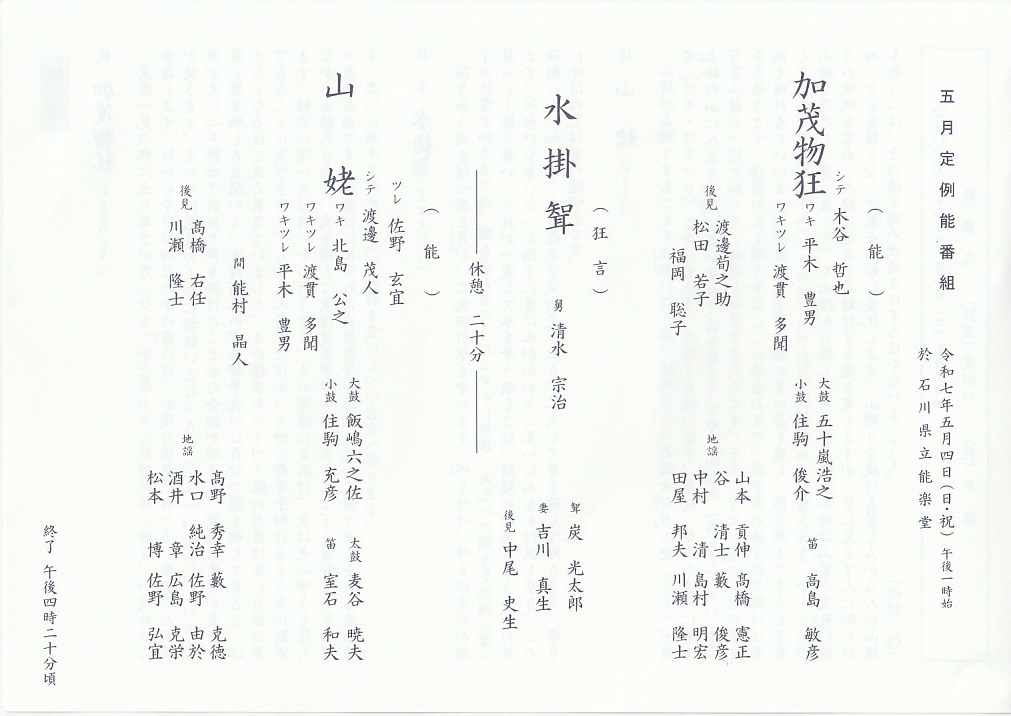 五月定例能番組
令和七年五月四日(日・祝)午後一時始
於 石川県立能楽堂
(能)
加茂物狂
シテ 木谷 哲也
ワキ 平木 豊男
ワキツレ 渡貫 多聞
大鼓 五十嵐浩之
小鼓 住駒 俊介
笛 高島 敏彦
後見 渡邊荀之助
松田 若子
福岡 聡子
地謡
山本 貢伸 髙橋 憲正
谷 清士 藪 俊彦
中村 清 島村 明宏
田屋 邦夫 川瀬 隆士
(狂言)
水掛聟
舅 清水 宗治
聟 炭 光太郎
妻 吉川 真生
後見 中尾 史生
休憩 二十分
(能)
山姥
ツレ 佐野 玄宜
シテ 渡邊 茂人
ワキ 北島 公之
ワキツレ 渡貫 多聞
ワキツレ 平木 豊男
間 能村 晶人
大鼓 飯嶋六之佐
小鼓 住駒 充彦
太鼓 麦谷 暁夫
笛 室石 和夫
後見 髙橋 右任
川瀬 隆士
地謡
髙野 秀幸 藪 克徳
水口 純治 佐野 由於
酒井 章 広島 克栄
松本 博 佐野 弘宜
終了 午後四時二十分頃